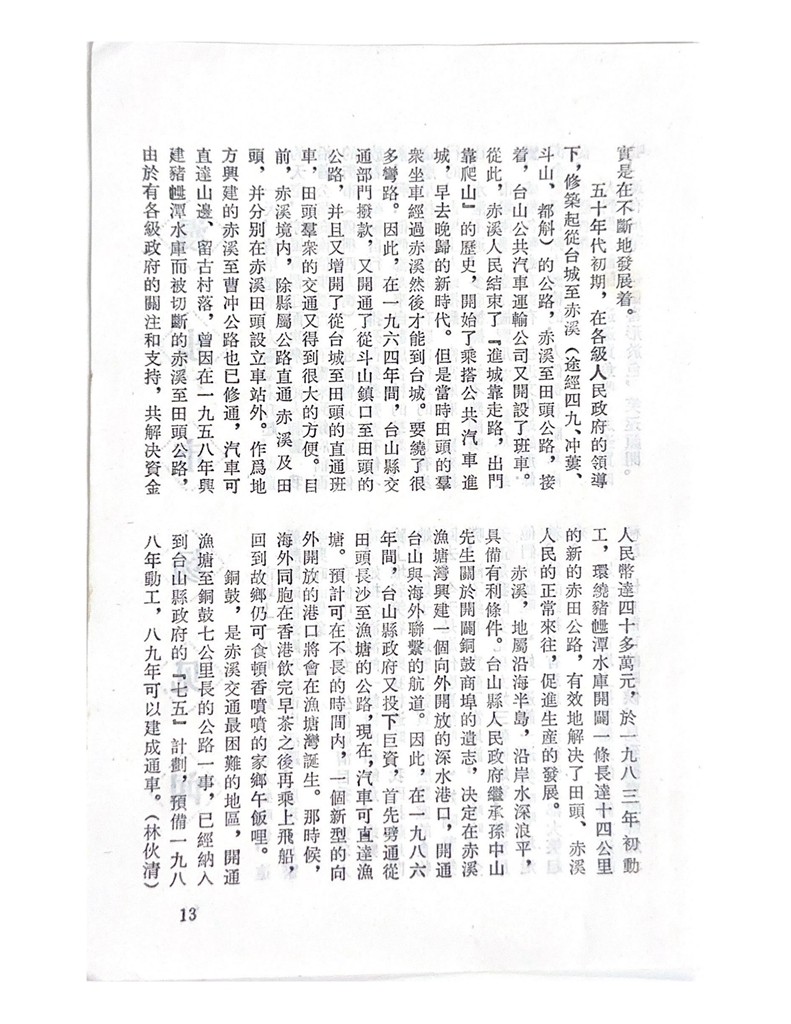 實是在不斷地發展着。
五十年代初期，在各級人民政府的領導
下，修築起從台城至赤溪（途經四九、冲蔞、
斗山、都斛）的公路，赤溪至田頭公路，接
着，台山公共汽車運輸公司又開設了班車。
從此，赤溪人民結束了『進城靠走路，出門
靠爬山』的歷史，開始了乘搭公共汽車進
城，早去晚歸的新時代。但是當時田頭的羣
衆坐車經過赤溪然後才能到台城。要繞了很
多彎路。因此，在一九六四年間，台山縣交
通部門撥款，又開通了從斗山鎮口至田頭的
公路，并且又增開了從台城至田頭的直通班
車，田頭羣衆的交通又得到很大的方便。目
前，赤溪境内，除縣屬公路直通赤溪及田
頭，并分別在赤溪田頭設立車站外。作爲地
方興建的赤溪至曹冲公路也已修通，汽車可
直達山邊、留古村落，曾因在一九五八年興
建豬乸潭水庫而被切斷的赤溪至田頭公路，
由於有各級政府的關注和支持，共解決資金
人民幣達四十多萬元，於一九八三年初動
工，環繞豬乸潭水庫開闢一條長達十四公里
的新的赤田公路，有效地解決了田頭、赤溪
人民的正常來往，促進生產的發展。
赤溪，地屬沿海半島，沿岸水深浪平，
具備有利條件。台山縣人民政府繼承孫中山
先生關於開闢銅鼓商埠的遺志，決定在赤溪
漁塘灣興建一個向外開放的深水港口，開通
台山與海外聯繫的航道。因此，在一九八六
年間，台山縣政府又投下巨資，首先劈通從
田頭長沙至漁塘的公路，現在，汽車可直達漁
塘。預計可在不長的時間内，一個新型的向
外開放的港口將會在漁塘灣誕生。那時候，
海外同胞在香港飲完早茶之後再乘上飛船，
回到故鄉仍可食頓香噴噴的家鄉午飯哩。
銅鼓，是赤溪交通最困難的地區，開通
漁塘至銅鼓七公里長的公路一事，已經納入
到台山縣政府的『七五』計劃，預備一九八
八年動工，八九年可以建成通車。（林伙清）
13